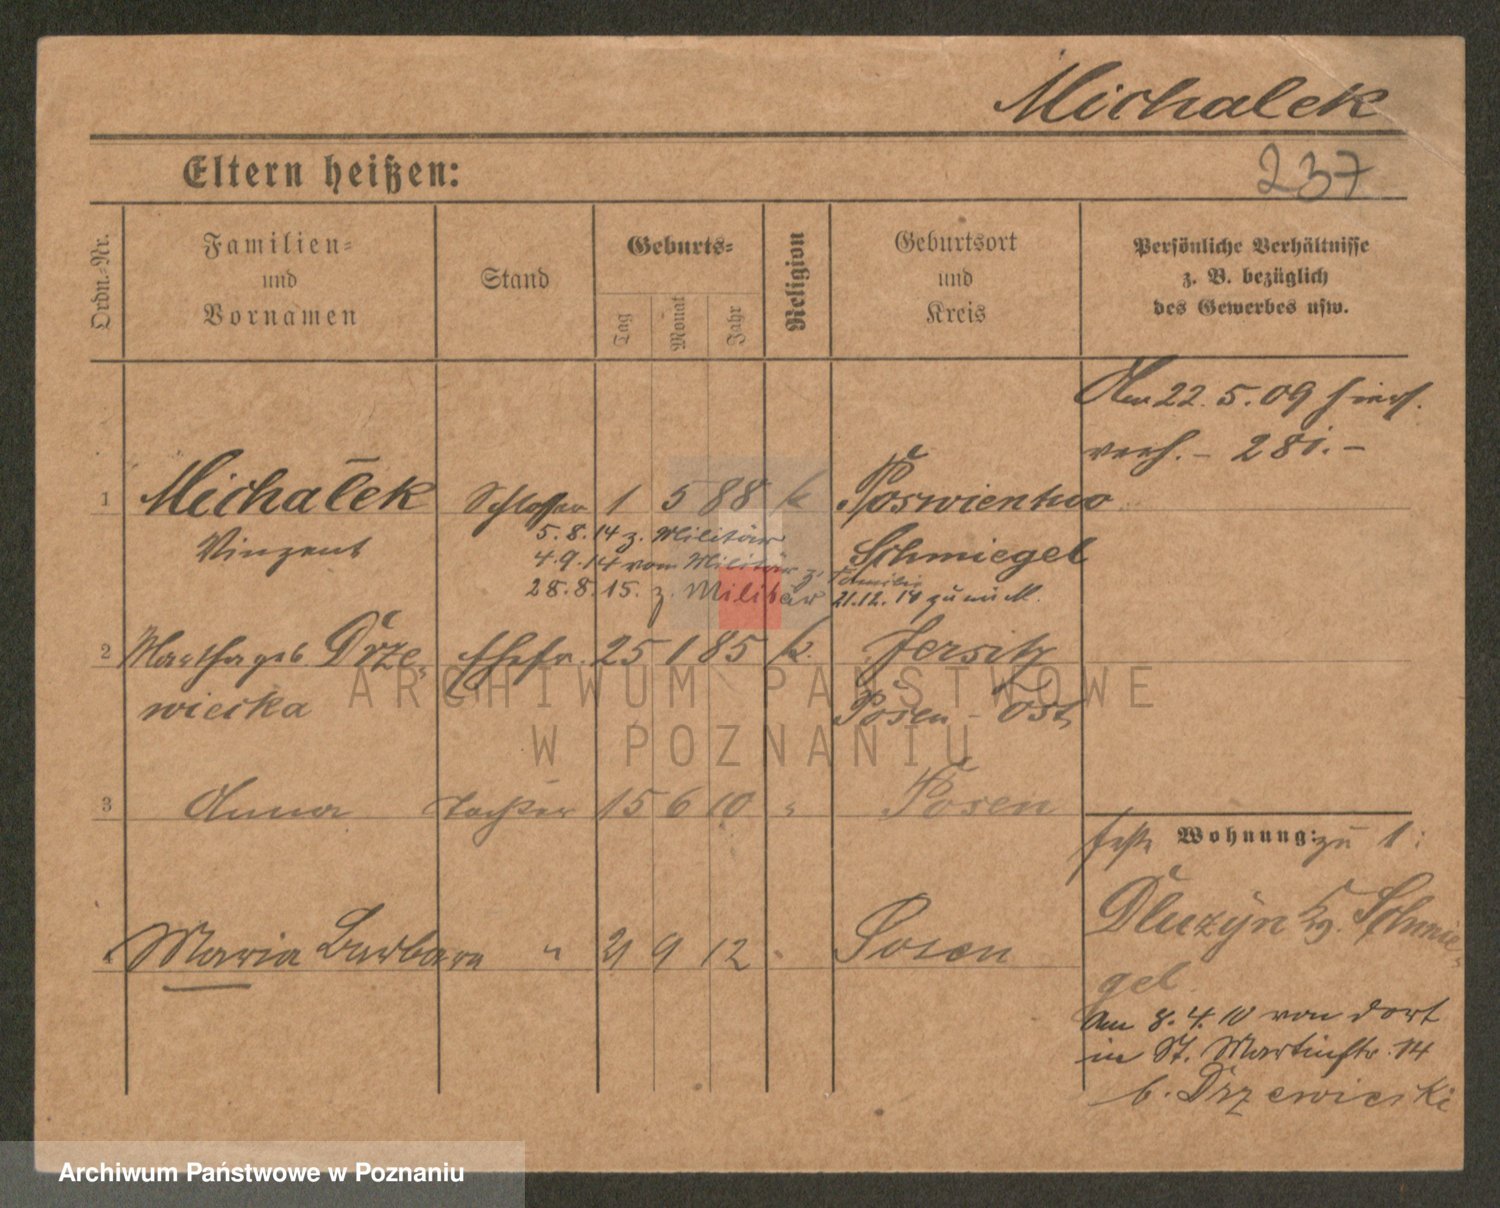 Michalek
237
Eltern heißen:
Ordn.-Nr.
Familien-
und
Vornamen
Stand
Geburts-
Tag
Monat
Jahr
Religion
Geburtsort
und
Kreis
Persönliche Verhältnisse
z. B. bezüglich
des Gewerbes usw.
Am 22. 5. 09 hier
verh. – 281. –
1 Michalek Schlosser 1 5 88 k Poswientno
Vinzent
5. 8. 14 z. Militär
Schmiegel
4. 9. 14 vom Militär z. Familie
28. 8. 15. z. Militär 21.12. 14
2 Martha geb Drze-
wiecka
Ehefr. 25 1 85 k. Jersitz
Posen – Ost
ARCHIWUM PAŃSTWOWE
W POZNANIU
3 Anna Tochter 15 6 10 " Posen
4 Maria Barbara " 21 9 12 " Posen
Wohnung: zu 1:
Dluzyn Kr. Schmie-
gel.
Am 8. 4. 10 von dort
in St. Martinstr. 14
b. Drzewiecki
Archiwum Państwowe w Poznaniu